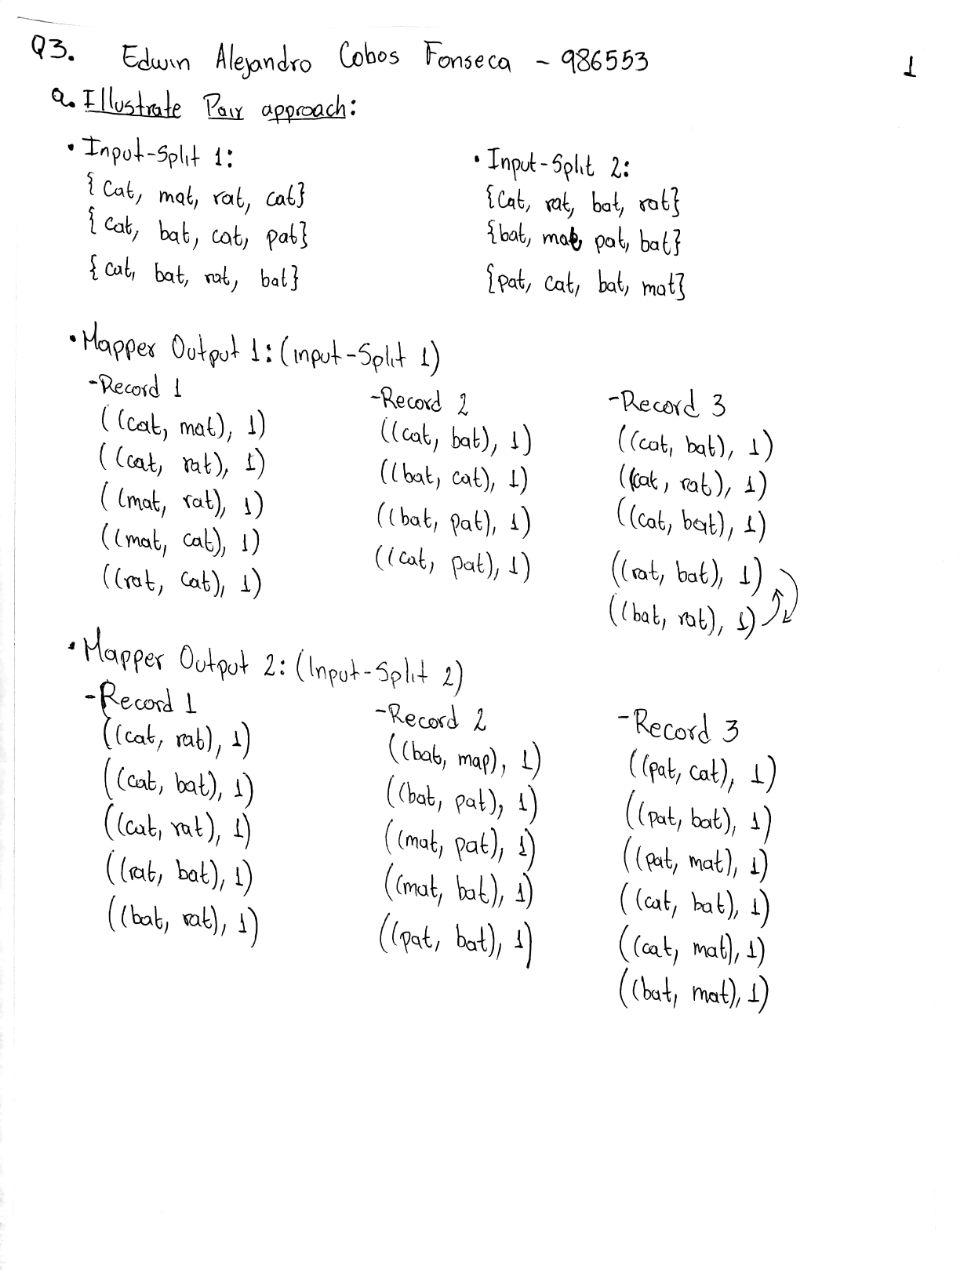 Q3. Edwin Alejandro Cobos Fonseca - 986553 1
a. Illustrate Pair approach:
• Input-Split 1:
{cat, mat, rat, cat}
{cat, bat, cat, pat}
{cat, bat, rat, bat}
• Input-Split 2:
{cat, rat, bat, rat}
{bat, mat, pat, bat}
{pat, cat, bat, mat}
• Mapper Output 1: (input-Split 1)
-Record 1
((cat, mat), 1)
((cat, rat), 1)
((mat, rat), 1)
((mat, cat), 1)
((rat, cat), 1)
-Record 2
((cat, bat), 1)
((bat, cat), 1)
((bat, pat), 1)
((cat, pat), 1)
-Record 3
((cat, bat), 1)
((cat, rat), 1)
((cat, bat), 1)
((rat, bat), 1)
((bat, rat), 1)
• Mapper Output 2: (Input-Split 2)
-Record 1
((cat, rat), 1)
((cat, bat), 1)
((cat, rat), 1)
((rat, bat), 1)
((bat, rat), 1)
-Record 2
((bat, map), 1)
((bat, pat), 1)
((mat, pat), 1)
((mat, bat), 1)
((pat, bat), 1)
-Record 3
((pat, cat), 1)
((pat, bat), 1)
((pat, mat), 1)
((cat, bat), 1)
((cat, mat), 1)
((bat, mat), 1)